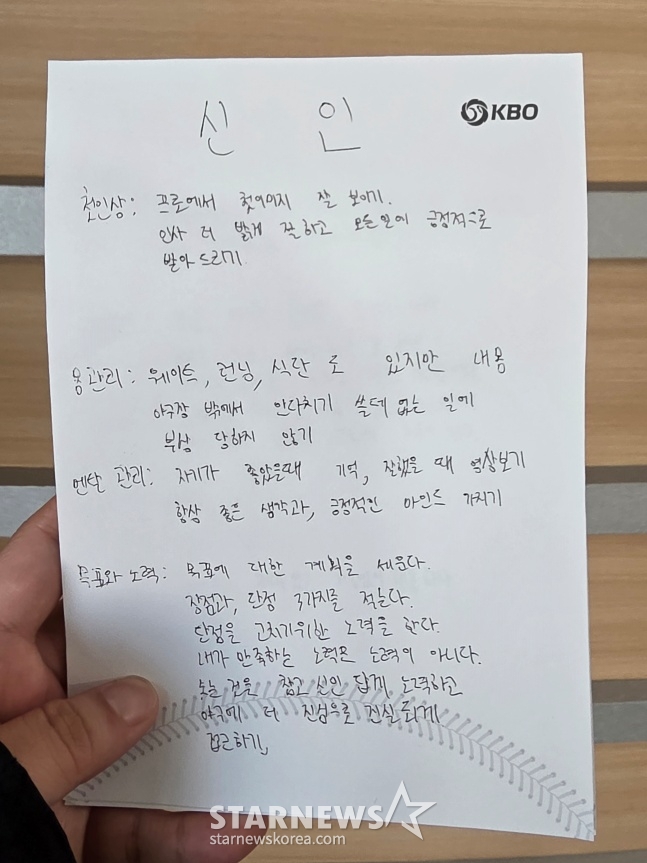 신 인
KBO
첫인상: 프로에서 첫이미지 잘 보이기.
인사 더 밝게 잘하고 모든일에 긍정적으로
받아드리기
몸관리: 웨이트, 런닝, 식단 도 있지만 내용
야구장 밖에서 안다치기 쓸데 없는 일에
부상 당하지 않기
멘탈 관리: 자기가 좋았을때 기억, 잘했을 때 영상보기
항상 좋은 생각과, 긍정적인 마인드 가지기
목표와 노력: 목표에 대한 계획을 세운다.
장점과, 단점 3가지를 적는다.
단점을 고치기위한 노력을 한다.
내가 만족하는 노력은 노력이 아니다.
것을 참고 신인 답게 노력하고
야구에 더 진심으로 진실되게
접근하기,
STARNEWS
starnewskorea.com